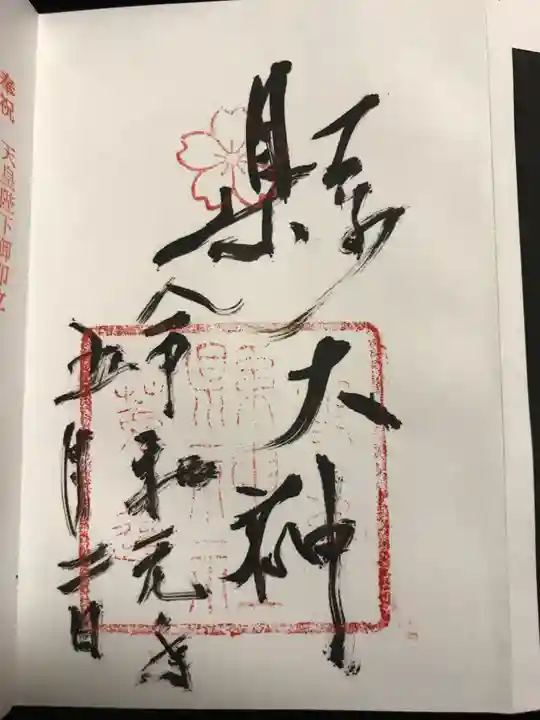 縣大神
令和元年
五月二日
奉祝 天皇陛下御即位